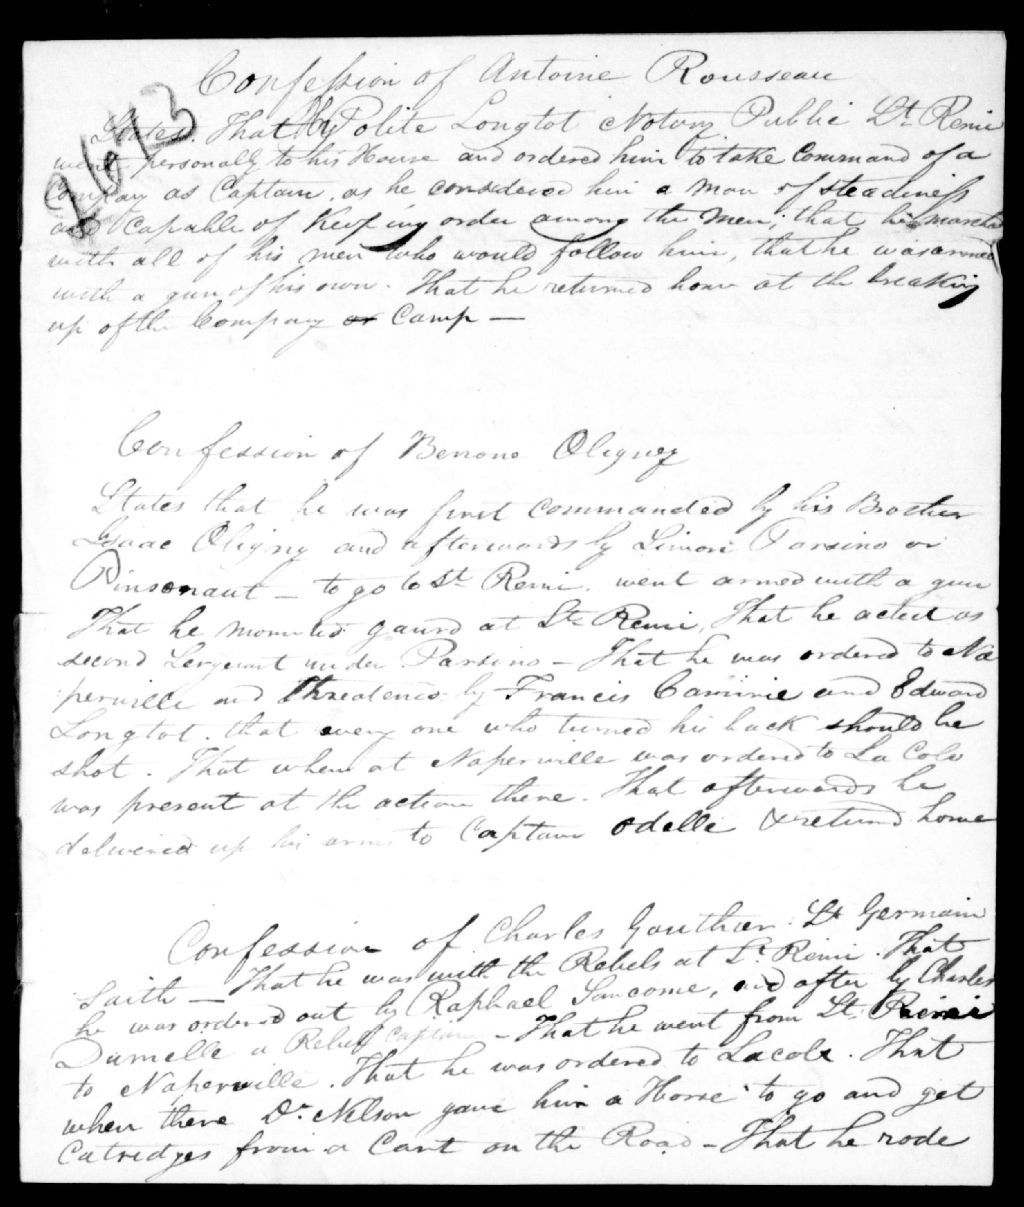 Confession of Antoine Rousseau
2673
States. That HyPolite Longtot Notary Public St. Remi
went personally to his House and ordered him to take Command of a
Company as Captain, as he considered him a man of steadiness
and Capable of Keeping order among the men, that he marched
with all of his men who would follow him, that he was armed
with a gun of his own. That he returned home at the breaking
up of the Company or Camp —
Confession of Benone Oligney
States that he was first Commanded by his Brother
Isaac Oligny and afterwards by Simon Parsino or
Pinsonaut — to go to St Remi. went armed with a gun
That he mounted gaurd at St. Remi, That he acted as
second Sergeant under Parsino — That he was ordered to Na
perville and threatened by Francis Camirie and Edward
Longtot. that every one who turned his back should be
shot. That when at Naperville was ordered to La Cole
was present at the action there. That afterwards he
delivered up his arms to Captain Odelle & returnd home
Confession of Charles Gouthier. St Germain
Saith — That he was with the Rebels at St. Remi. That
he was ordered out by Raphael Sancome, and after by Charles
Dumelle a Rebel Captain — That he went from St. Remi
to Naperville. That he was ordered to Lacole. That
when there Dr. Nelson gave him a Horse to go and get
Catridges from a Cart on the Road — That he rode